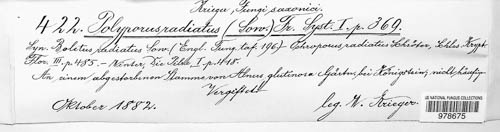 Krieger, Fungi saxonici.
422. Polyporus radiatus (Sow.) Fr. Syst. I. p. 369.
Syn. Boletus radiatus Sow. (Engl. Fung. taf. 196) – Chroporus radiatus Schröter, Schles. Krypt.
Flor. III. p. 485. – Winter, Die Pilze I. p. 418.
An einem abgestorbenen Stamme von Alnus glutinosa Gärtn. bei Königstein, nicht häufig.
Vergiftet!
Oktober 1882.
leg. W. Krieger.
US NATIONAL FUNGUS COLLECTIONS
978675